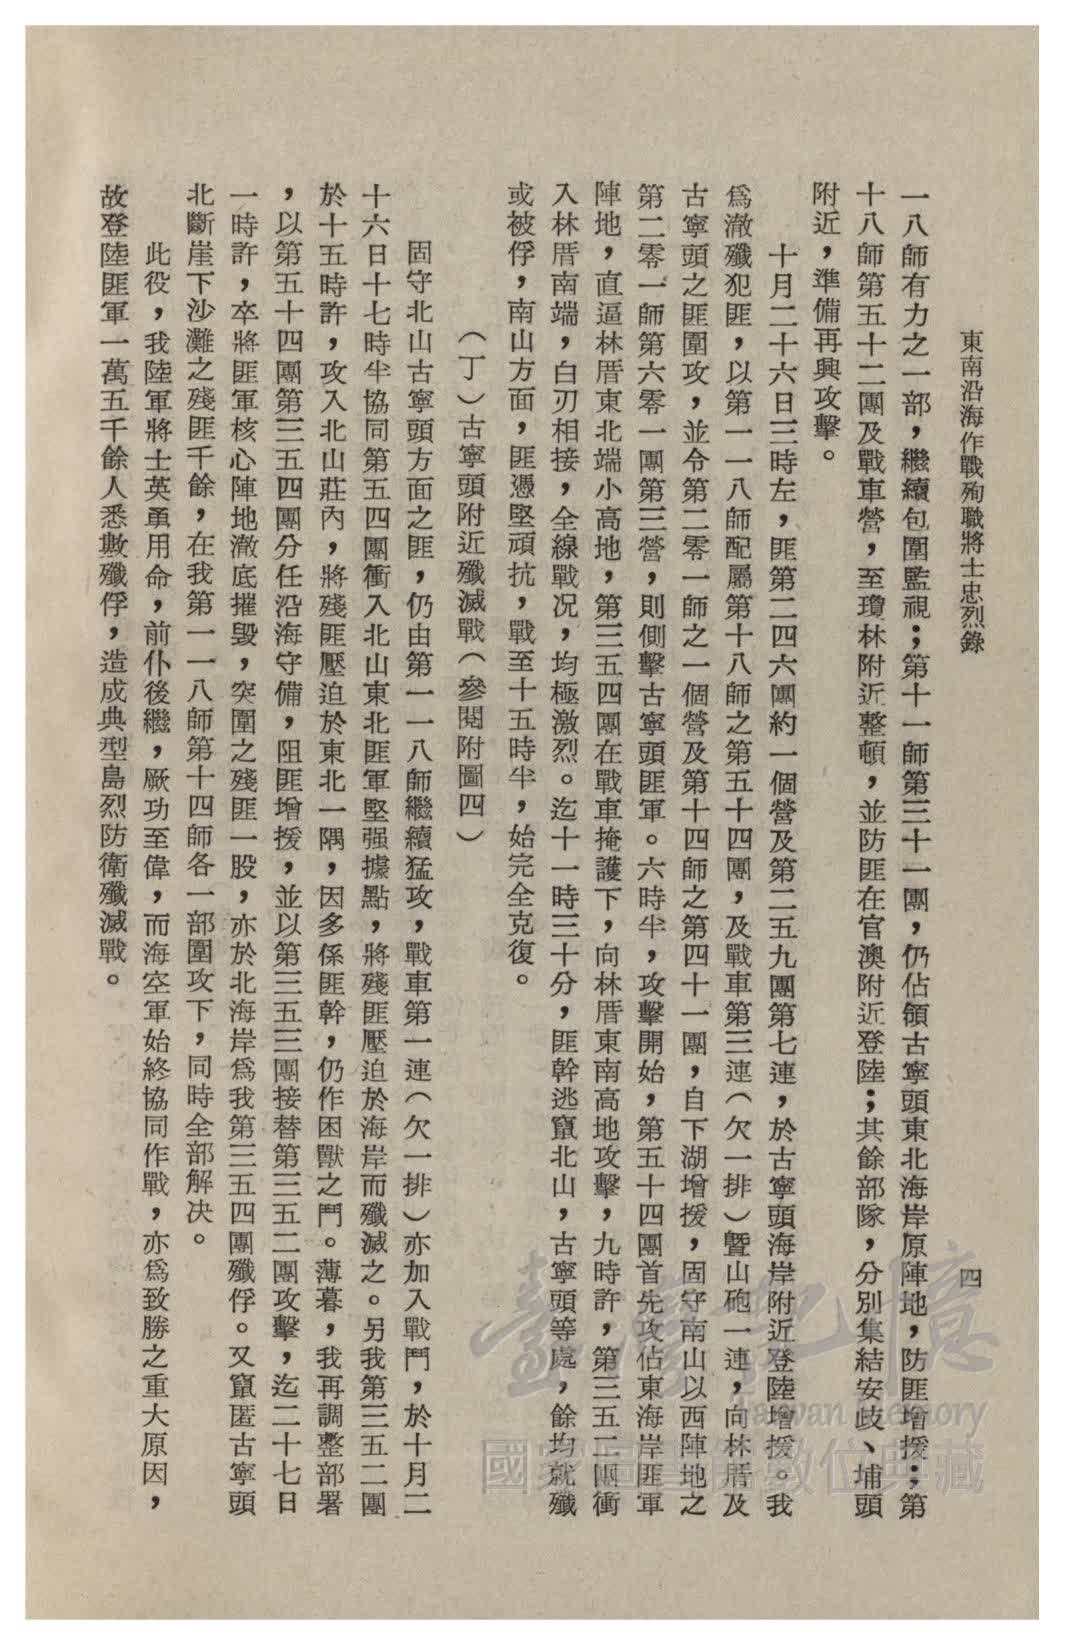 東南沿海作戰殉職將士忠烈錄
四
一八師有力之一部，繼續包圍監視；第十一師第三十一團，仍佔領古寧頭東北海岸原陣地，防匪增援；第
十八師第五十二團及戰車營，至瓊林附近整頓，並防匪在官澳附近登陸；其餘部隊，分別集結安歧、埔頭
附近，準備再興攻擊。
十月二十六日三時左，匪第二四六團約一個營及第二五九團第七連，於古寧頭海岸附近登陸增援。我
爲澈殲犯匪，以第一一八師配屬第十八師之第五十四團，及戰車第三連（欠一排）曁山砲一連，向林厝及
古寧頭之匪圍攻，並令第二零一師之一個營及第十四師之第四十一團，自下湖增援，固守南山以西陣地之
第二零一師第六零一團第三營，則側擊古寧頭匪軍。六時半，攻擊開始，第五十四團首先攻佔東海岸匪軍
陣地，直逼林厝東北端小高地，第三五四團在戰車掩護下，向林厝東南高地攻擊，九時許，第三五二團衝
入林厝南端，白刃相接，全線戰況，均極激烈。迄十一時三十分，匪幹逃竄北山，古寧頭等處，餘均就殲
或被俘，南山方面，匪憑堅頑抗，戰至十五時半，始完全克復。
（丁）古寧頭附近殲滅戰（參閱附圖四）
固守北山古寧頭方面之匪，仍由第一一八師繼續猛攻，戰車第一連（欠一排）亦加入戰鬥，於十月二
十六日十七時半協同第五四團衝入北山東北匪軍堅强據點，將殘匪壓迫於海岸而殲滅之。另我第三五二團
於十五時許，攻入北山莊內，將殘匪壓迫於東北一隅，因多係匪幹，仍作困獸之鬥。薄暮，我再調整部署
，以第五十四團第三五四團分任沿海守備，阻匪增援，並以第三五三團接替第三五二團攻擊，迄二十七日
一時許，卒將匪軍核心陣地澈底摧毀，突圍之殘匪一股，亦於北海岸爲我第三五四團殲俘。又竄匿古寧頭
北斷崖下沙灘之殘匪千餘，在我第一一八師第十四師各一部圍攻下，同時全部解決。
此役，我陸軍將士英勇用命，前仆後繼，厥功至偉，而海空軍始終協同作戰，亦爲致勝之重大原因，
故登陸匪軍一萬五千餘人悉數殲俘，造成典型島烈防衛殲滅戰。
臺灣記憶
Taiwan Memory
國家圖書館數位典藏